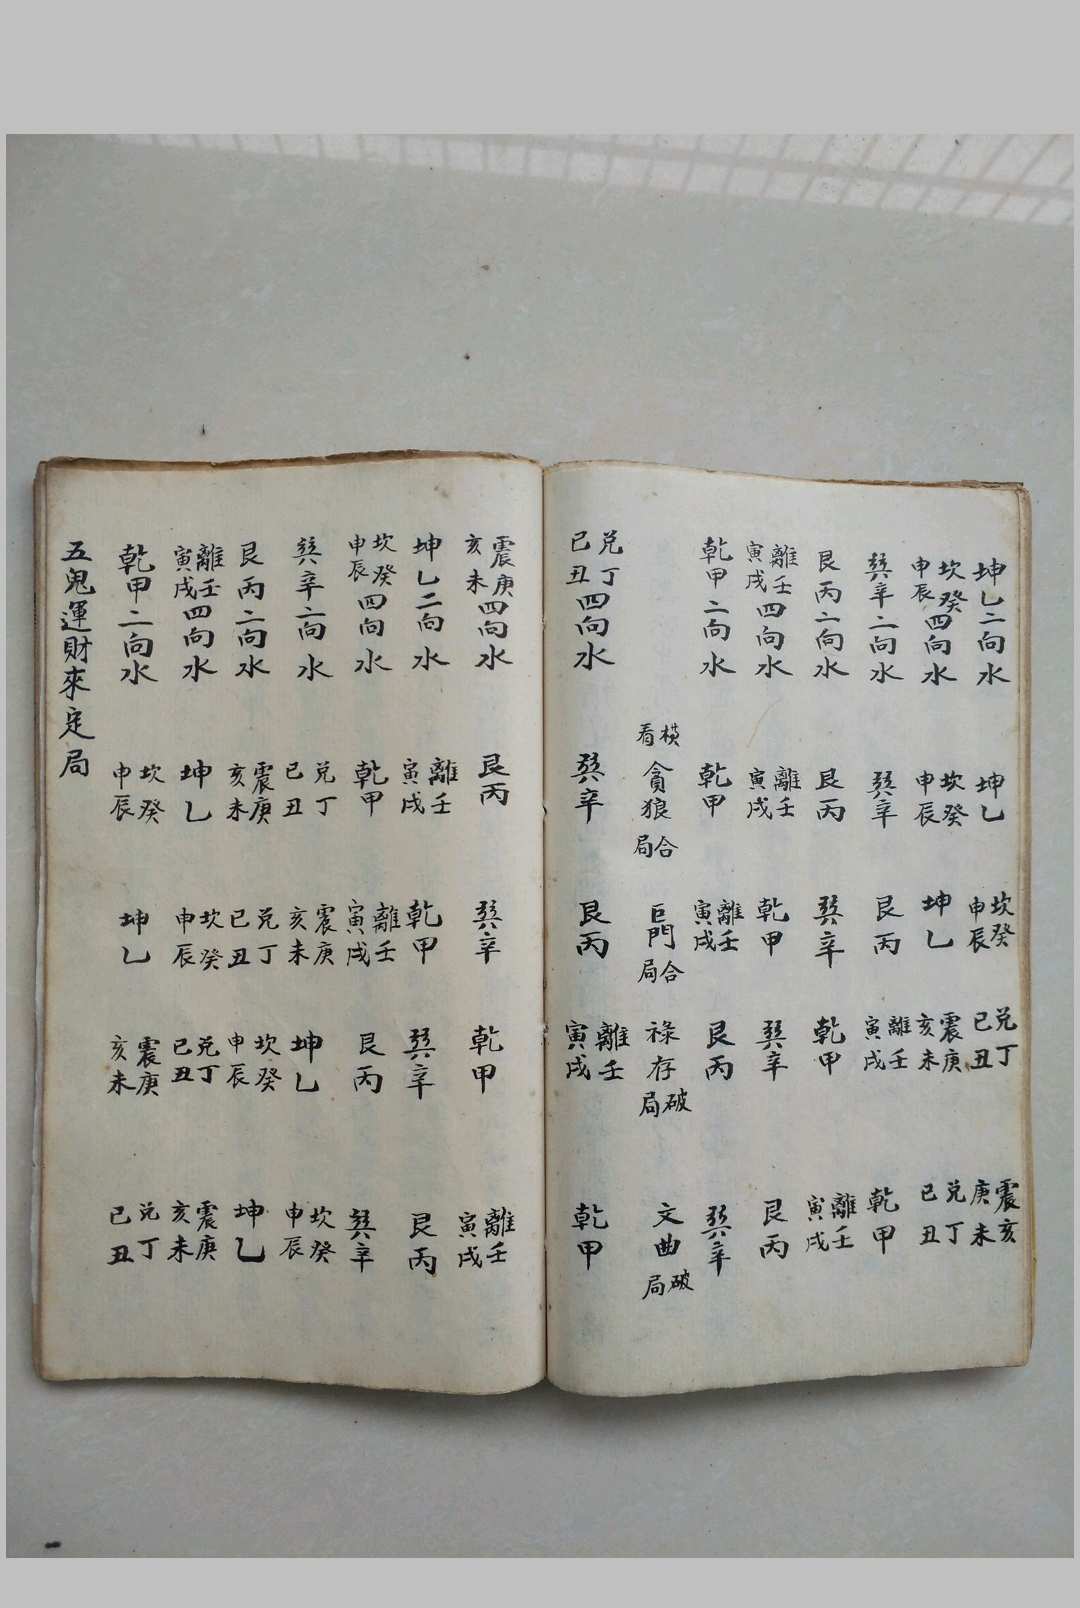 坤乙二向水 坤乙 坎癸申辰 兌丁巳丑 震亥庚未
坎癸申辰四向水 坎癸申辰 坤乙 震庚亥未 兌丁巳丑
巽辛二向水 巽辛 艮丙 離壬寅戌 乾甲
艮丙二向水 艮丙 巽辛 乾甲 離壬寅戌
離壬寅戌四向水 離壬寅戌 乾甲 巽辛 艮丙
乾甲二向水 乾甲 離壬寅戌 艮丙 巽辛
橫看 貪狼合局 巨門合局 祿存破局 文曲破局
兌丁巳丑四向水 巽辛 艮丙 離壬寅戌 乾甲
震庚亥未四向水 艮丙 巽辛 乾甲 離壬寅戌
坤乙二向水 離壬寅戌 乾甲 巽辛 艮丙
坎癸申辰四向水 乾甲 離壬寅戌 艮丙 巽辛
巽辛二向水 兌丁巳丑 震庚亥未 坤乙 坎癸申辰
艮丙二向水 震庚亥未 兌丁巳丑 坎癸申辰 坤乙
離壬寅戌四向水 坤乙 坎癸申辰 兌丁巳丑 震庚亥未
乾甲二向水 坎癸申辰 坤乙 震庚亥未 兌丁巳丑
五鬼運財來定局